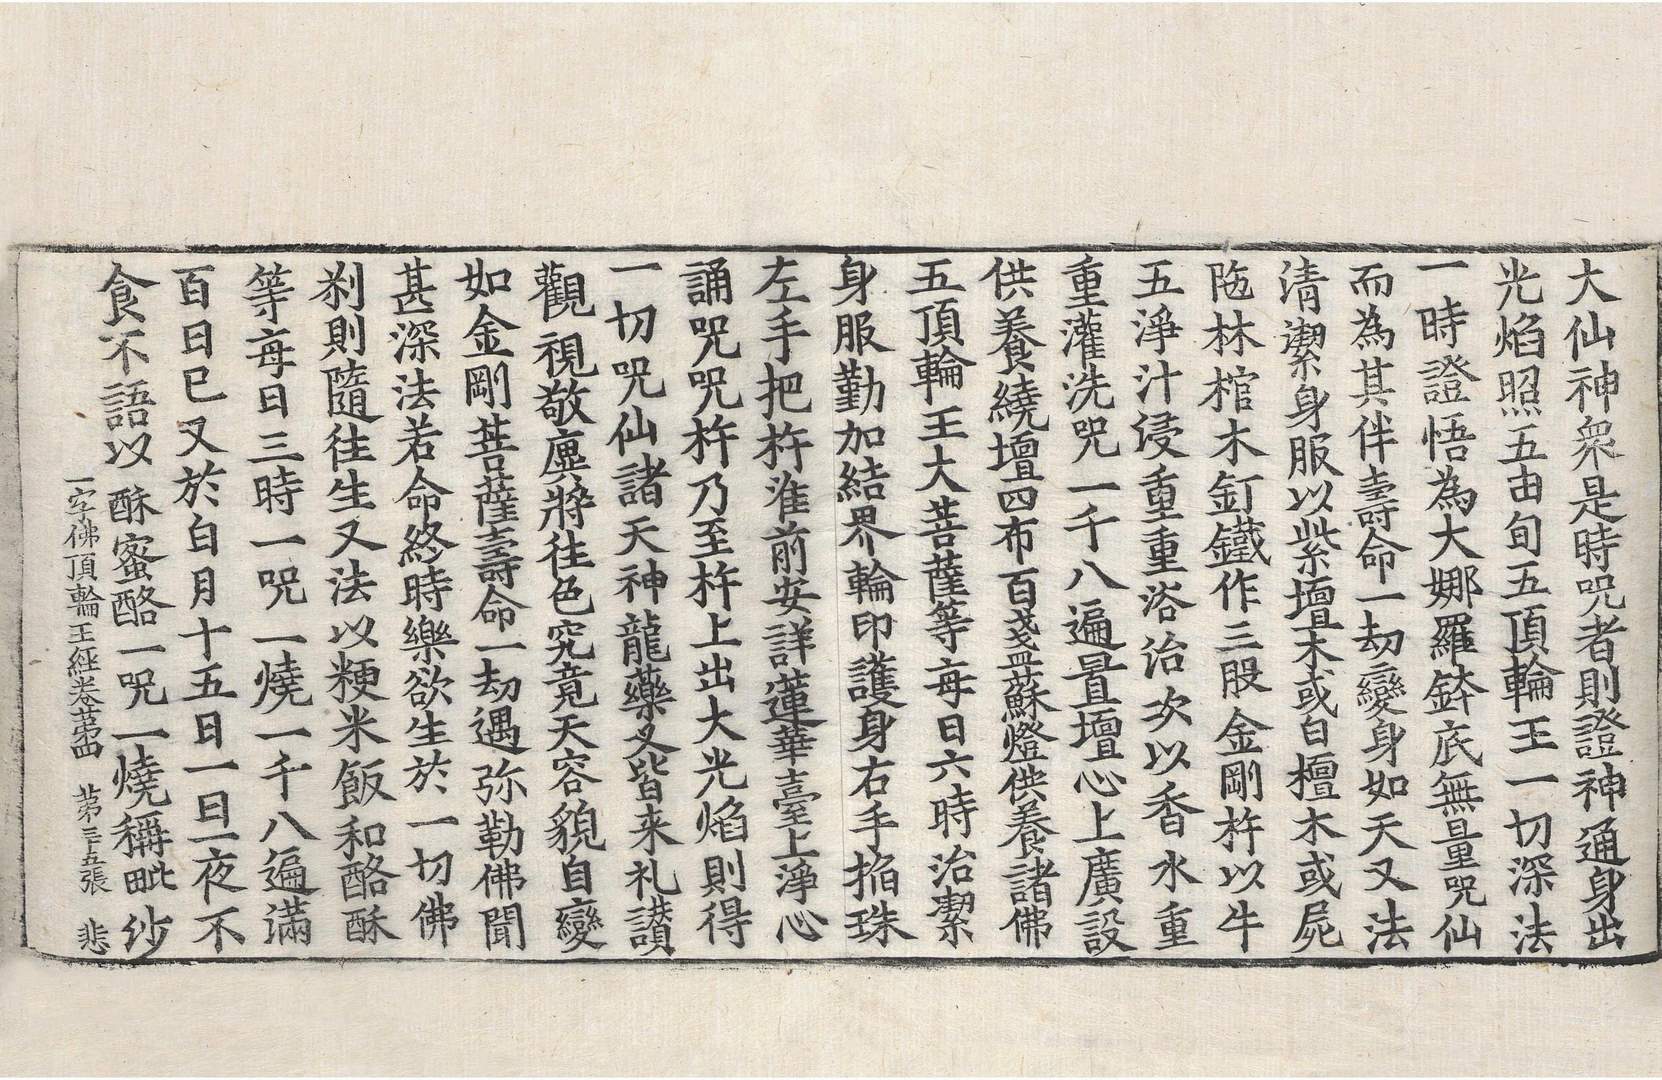 大仙神衆是時呪者則證神通身出
光焰照五由旬五頂輪王一切深法
一時證悟為大娜羅鉢底無量呪仙
而為其伴壽命一劫變身如天又法
清潔身服以紫壇木或白檀木或屍
陁林棺木釘鐵作三股金剛杵以牛
五淨汁浸重重浴治次以香水重
重灌洗呪一千八遍置壇心上廣設
供養繞壇四布百盞蘇燈供養諸佛
五頂輪王大菩薩等每日六時治潔
身服勤加結界輪印護身右手掐珠
左手把杵淮前安詳蓮華臺上淨心
誦呪呪杵乃至杵上出大光焰則得
一切呪仙諸天神龍藥叉皆来礼讃
觀視敬㢑將往色究竟天容貌自變
如金剛菩薩壽命一劫遇弥勒佛聞
甚深法若命終時樂欲生於一切佛
刹則隨往生又法以粳米飯和酪酥
等每日三時一呪一燒一千八遍滿
百日已又於白月十五日一日一夜不
食不語以酥蜜酪一呪一燒稱毗紗
一字佛頂輪王經卷苐四 苐三五張 悲